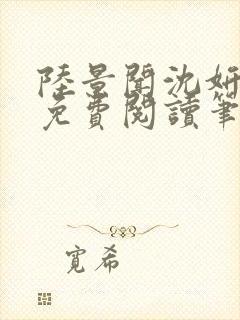 陸景聞沈妍
免費閱讀筆
寬希